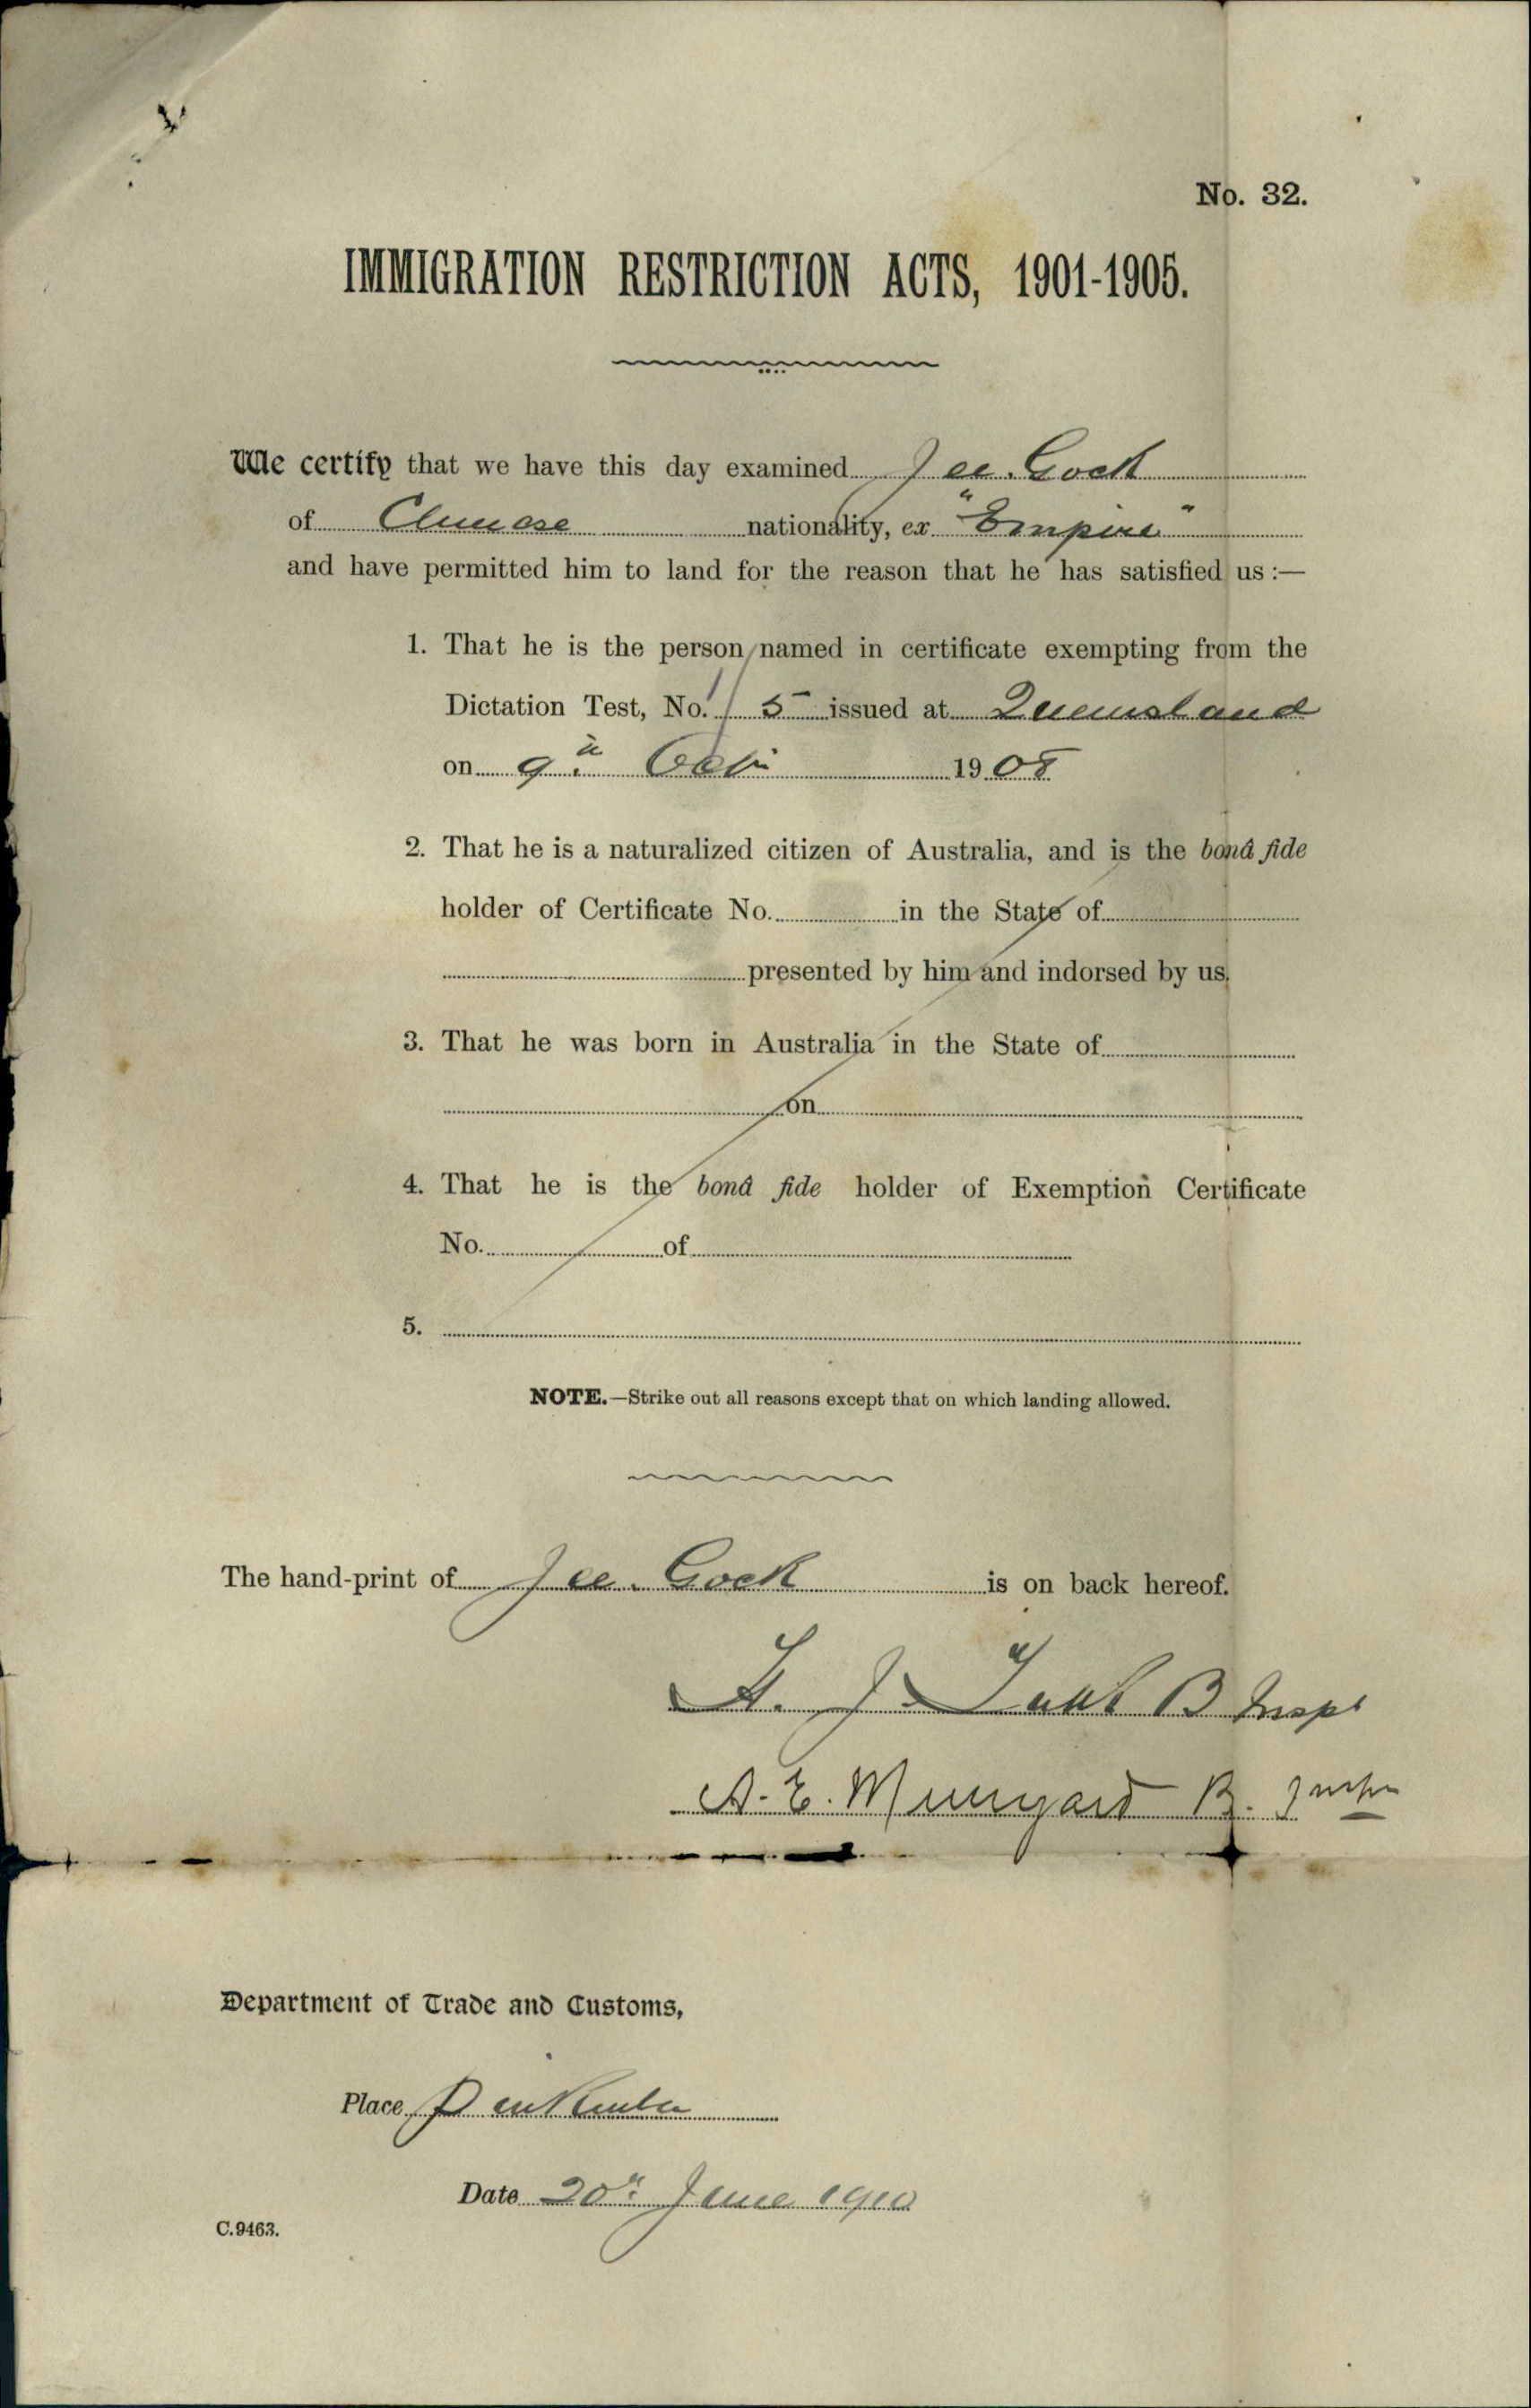 No. 32.
IMMIGRATION RESTRICTION ACTS, 1901-1905.
We certify that we have this day examined Jee Gock
of Chinese nationality, ex "Empire"
and have permitted him to land for the reason that he has satisfied us :—
1. That he is the person named in certificate exempting from the
Dictation Test, No. 5 issued at Queensland
on 9th Oct 1908
2. That he is a naturalized citizen of Australia, and is the bonâ fide
holder of Certificate No. in the State of
presented by him and indorsed by us.
3. That he was born in Australia in the State of
on
4. That he is the bonâ fide holder of Exemption Certificate
No. of
5.
NOTE.—Strike out all reasons except that on which landing allowed.
The hand-print of Jee Gock is on back hereof.
J. B Inspr
A. E. B.
Department of Trade and Customs,
Place Pinkenba
Date 20th June 1910
C.9463.